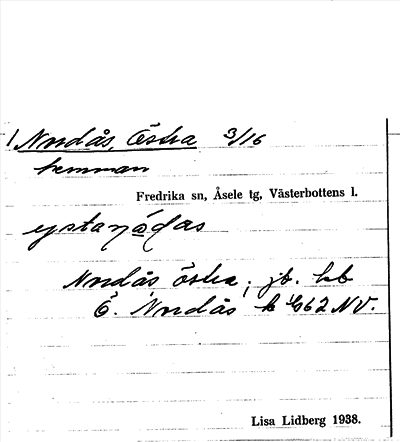 Nordås, Östra 3/16
hemman
Fredrika sn, Åsele tg, Västerbottens l.
Nordås östra, jb. hb
Ö. Nordås k 662 NV.
Lisa Lidberg 1938.